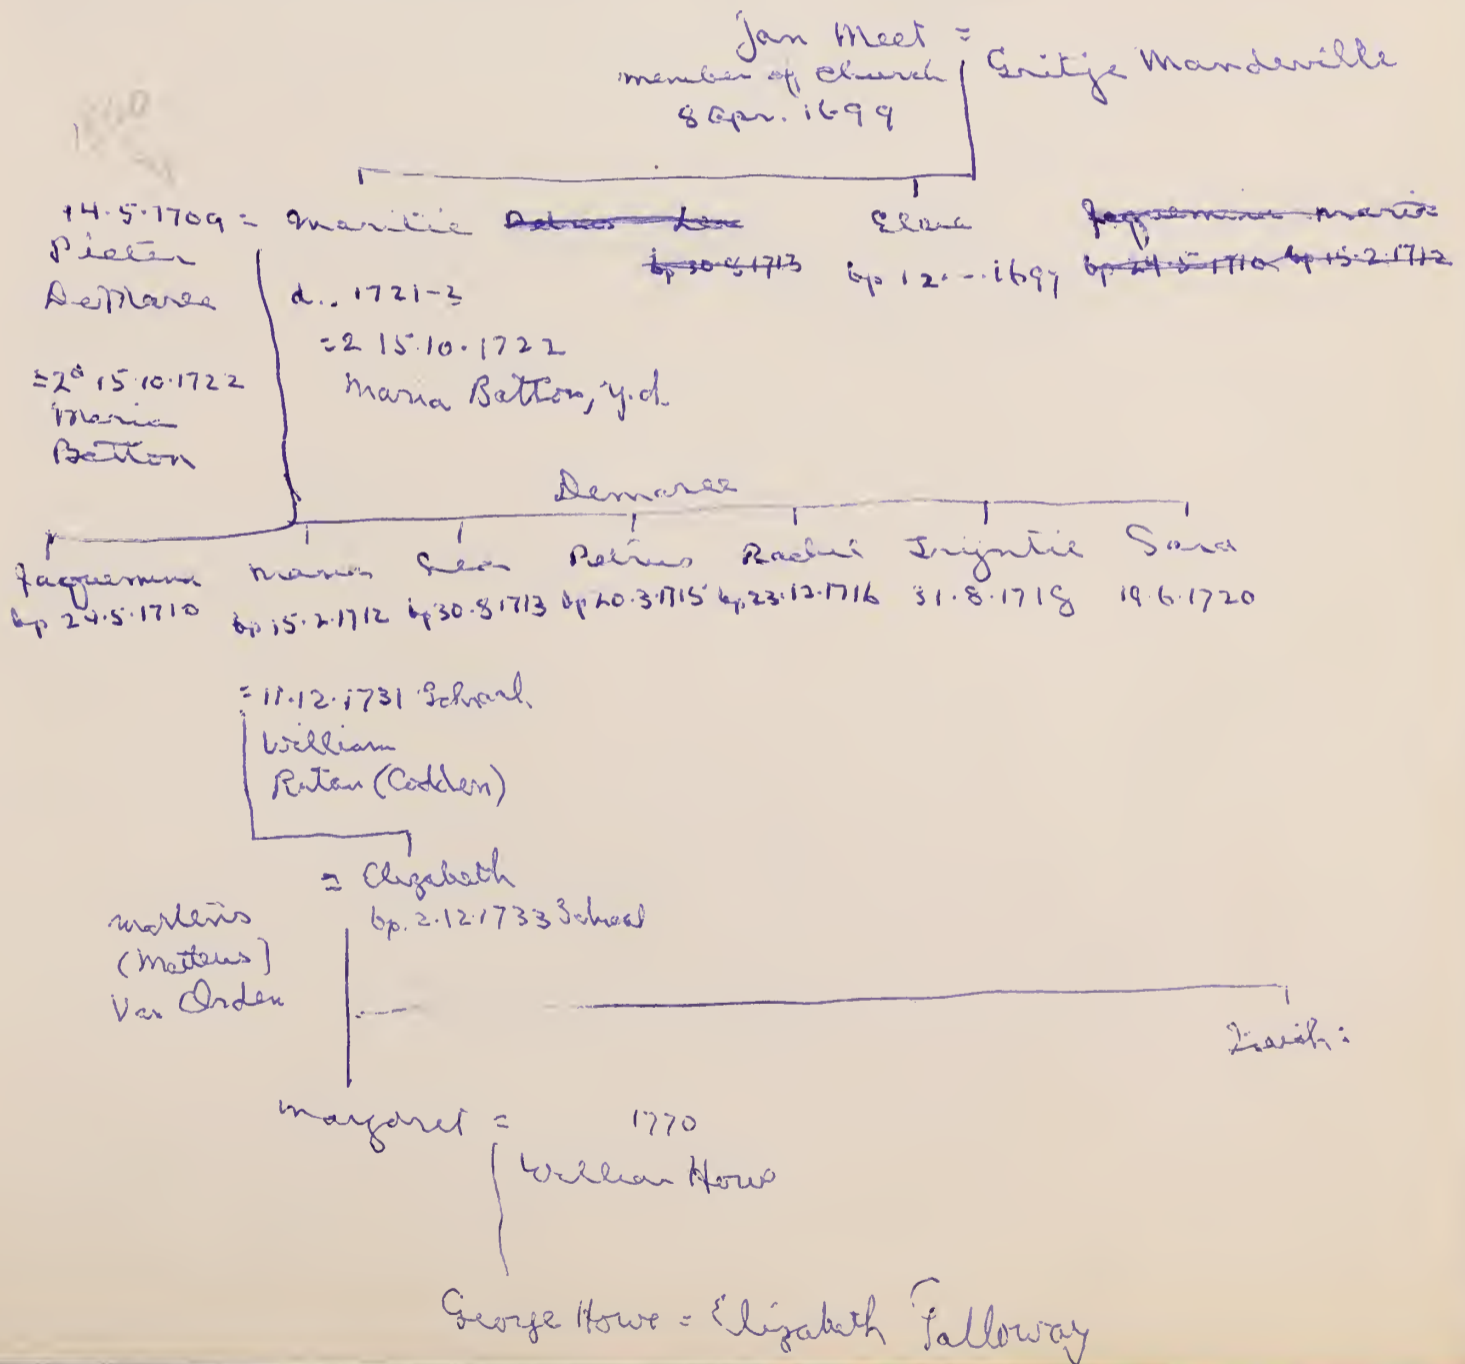 Jan Meet =
Gritje Mandeville
member of Church
8 Apr. 1699
14.5.1709 = Maritie
Pieter
DeMaree
=2d 15.10.1722
Maria
Batton
d.. 1721-2
=2 15.10.1722
Maria Batton, y.d.
Petrus Lea
bp 30.8.1713
bp 12.--.1697
Jaquemina Maria
bp 24.5.1710 bp 15.2.1712
Demaree
Jaquemina Maria Lea Petrus Rachel Tryntie Sara
bp 24.5.1710 bp 15.2.1712 bp 30.8.1713 bp 20.3.1715 bp 23.12.1716 31.8.1718 19.6.1720
= 11.12.1731 Schraal
William
Rutan (Codden)
= Elizabeth
bp. 2.12.1733 Schraal
(Matteus)
Van Orden
Margaret = 1770
William Howe
George Howe = Elizabeth Talloway